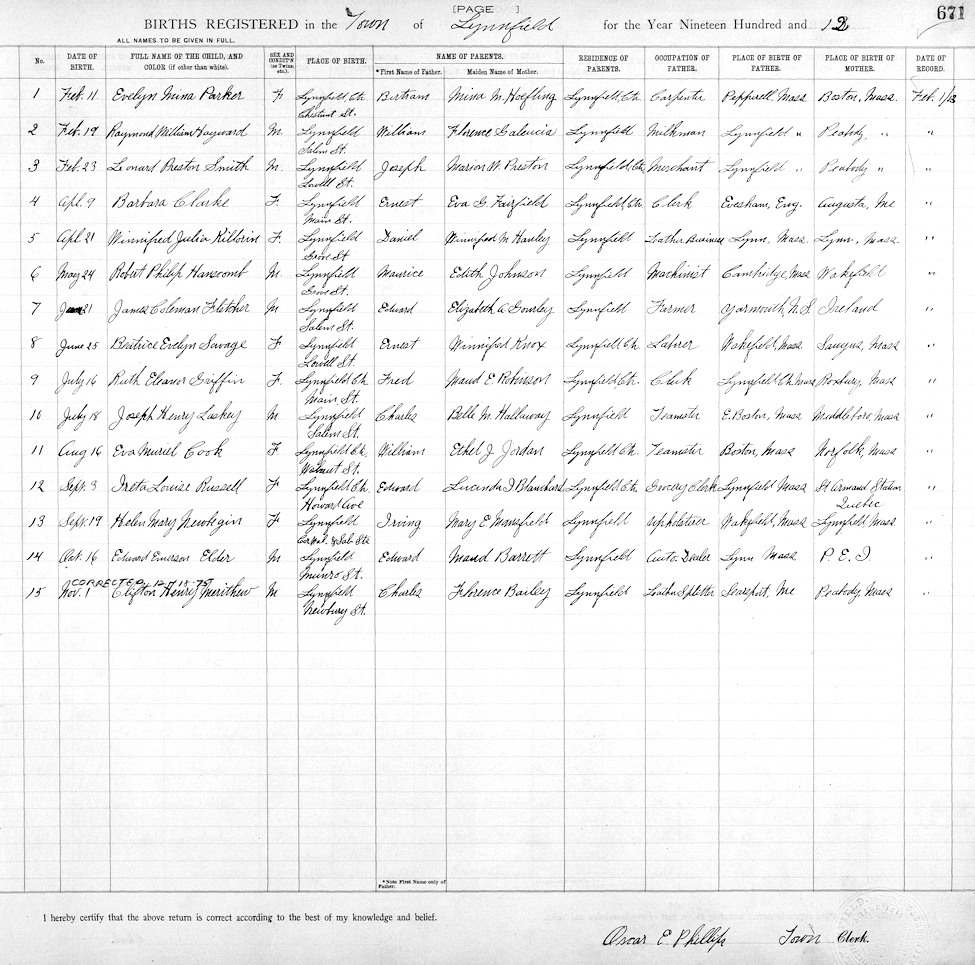 [PAGE ] 671
BIRTHS REGISTERED in the Town of Lynnfield for the Year Nineteen Hundred and 12
ALL NAMES TO BE GIVEN IN FULL.
No. DATE OF BIRTH. FULL NAME OF THE CHILD, AND COLOR (if other than white). SEX AND CONDIT'N (as Twins, etc.). PLACE OF BIRTH. NAME OF PARENTS. *First Name of Father. Maiden Name of Mother. RESIDENCE OF PARENTS. OCCUPATION OF FATHER. PLACE OF BIRTH OF FATHER. PLACE OF BIRTH OF MOTHER. DATE OF RECORD.
1 Feb. 11 Evelyn Mina Parker F. Lynnfield, Ctr. Bertram Mina M. Hoefling Lynnfield, Ctr. Carpenter Pepperell, Mass Boston, Mass. Feb. 1/13
Chestnut St.
2 Feb. 19 Raymond William Hayward M. Lynnfield William Florence Galeucia Lynnfield Milkman Lynnfield " Peabody, " "
Salem St.
3 Feb. 23 Leonard Preston Smith M. Lynnfield Joseph Marion W. Preston Lynnfield, Ctr. Merchant Lynnfield " Peabody " "
Lowell St.
4 Apl. 9 Barbara Clarke F. Lynnfield Ernest Eva G. Fairfield Lynnfield Ctr. Clerk Evesham, Eng. Augusta, Me "
Main St.
5 Apl. 21 Winnifred Julia Killorin F. Lynnfield Daniel Winnifred M. Hanley Lynnfield Leather Business Lynn, Mass. Lynn, Mass. "
Grove St.
6 May 24 Robert Philip Hanscomb M. Lynnfield Maurice Edith Johnson Lynnfield Machinist Cambridge, Mass Wakefield "
Grove St.
7 21 James Coleman Fletcher M Lynnfield Edward Elizabeth A. Gourley Lynnfield Farmer Yarmouth, N.S. Ireland "
Salem St.
8 June 25 Beatrice Evelyn Savage F Lynnfield Ernest Winnifred Knox Lynnfield Ctr. Laborer Wakefield, Mass Saugus, Mass "
Lowell St.
9 July 16 Ruth Eleanor Griffin F. Lynnfield Ctr. Fred Maud E. Robinson Lynnfield Ctr. Clerk Lynnfield Ctr. Mass Roxbury, Mass "
Main St.
10 July 18 Joseph Henry Laskey M Lynnfield Charles Belle M. Hallaway Lynnfield Teamster E. Boston, Mass Middleboro, Mass "
Salem St.
11 Aug 16 Eva Muriel Cook F Lynnfield Ctr. William Ethel J. Jordan Lynnfield Ctr. Teamster Boston, Mass Norfolk, Mass "
Walnut St.
12 Sept. 3 Louise Russell F Lynnfield Ctr. Edward Lucinda J Blanchard Lynnfield Ctr. Grocery Clerk Lynnfield Mass St Armand Station "
Howard Ave Quebec
13 Sept. 19 Helen Mary Newhigin F Lynnfield Irving Mary E Mansfield Lynnfield Upholsterer Wakefield, Mass Lynnfield, Mass "
14 Oct. 16 Edward Emerson Elder M Lynnfield Edward Maud Barrett Lynnfield Auto. Dealer Lynn Mass P. E. I. "
Munro St.
CORRECTED 12-
15 Nov. 1 Clifton Henry Merithew M Lynnfield Charles Florence Bailey Lynnfield Leather Splitter Searsport, Me Peabody, Mass "
Newbury St.
*Note First Name only of Father.
I hereby certify that the above return is correct according to the best of my knowledge and belief.
Oscar E. Phillips Town Clerk.